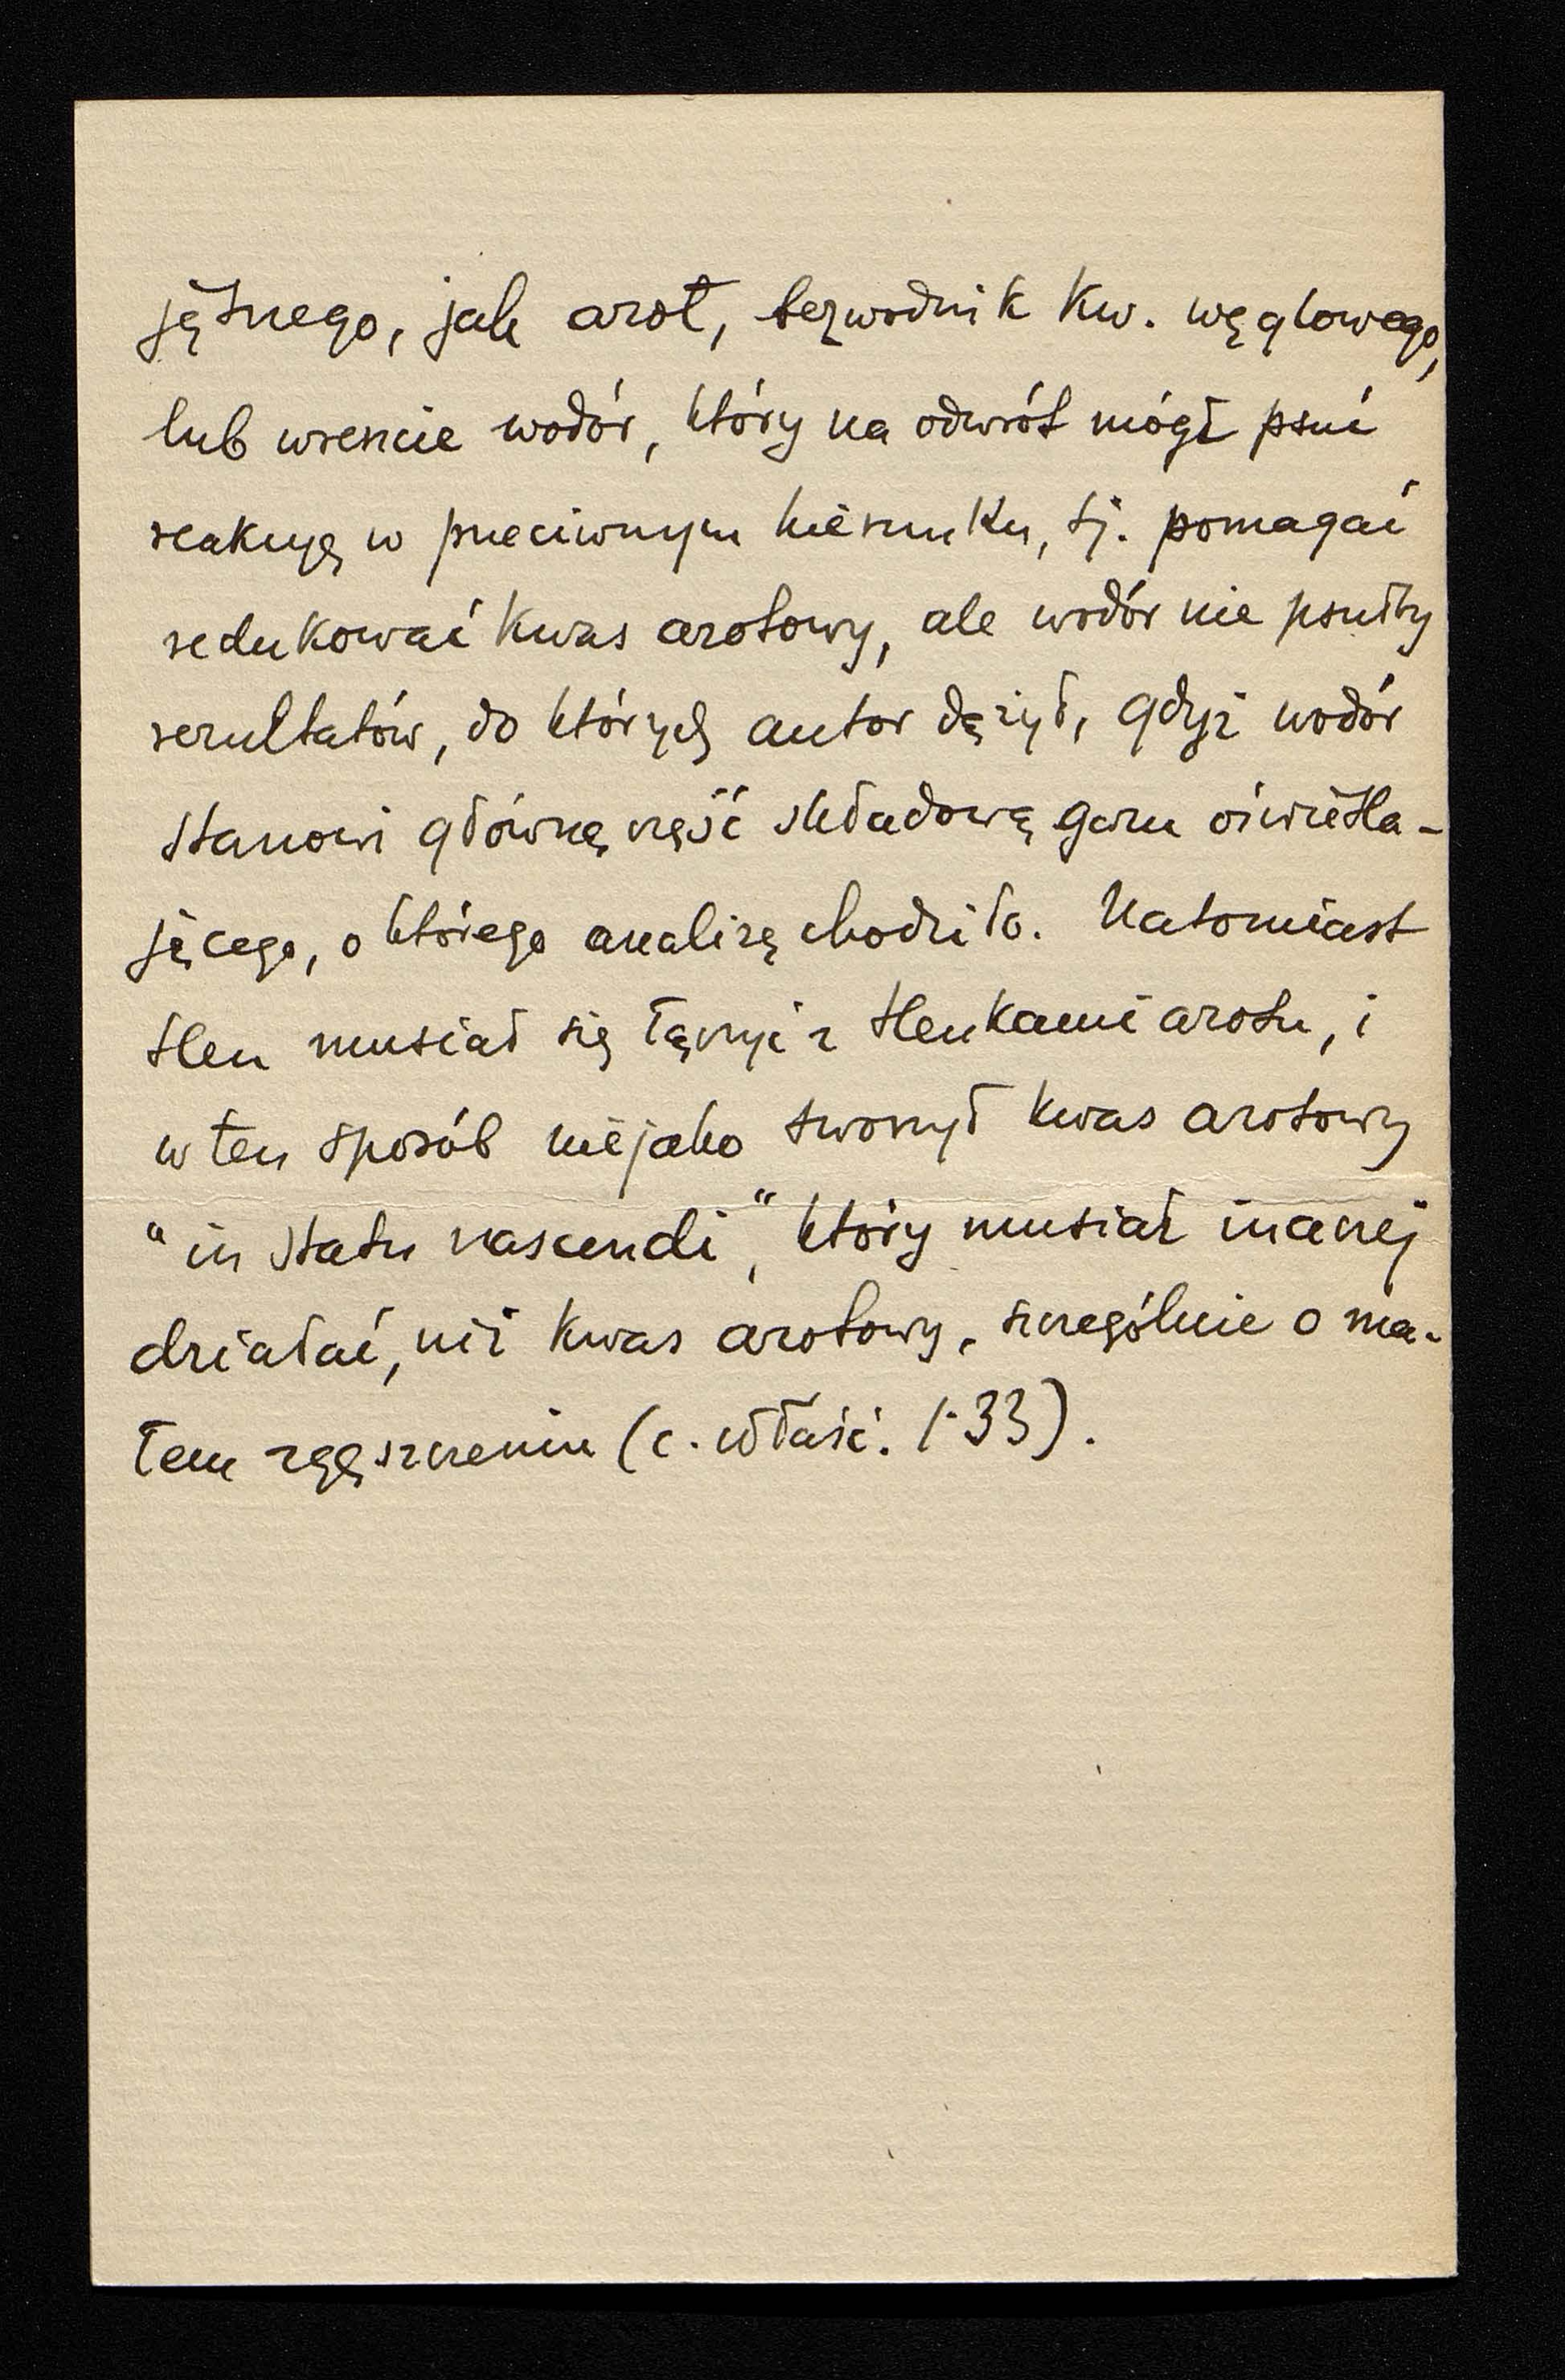 jętnego, jak azot, bezwodnik kw. węglowego,
lub wreszcie wodór, który na odwrót mógł psuć
reakcyę w przeciwnym kierunku, tj. pomagać
redukować kwas azotowy, ale wodór nie psułby
rezultatów, do których autor dążył, gdyż wodór
stanowi główną część składową gazu oświetla-
jącego, o którego analizę chodziło. Natomiast
tlen musiał się łączyć z tlenkami azotu, i
w ten sposób niejako tworzył kwas azotowy
"in statu nascendi", który musiał inaczej
działać, niż kwas azotowy, szczególnie o ma-
łem zgęszczeniu (c. właśc. 1·33).